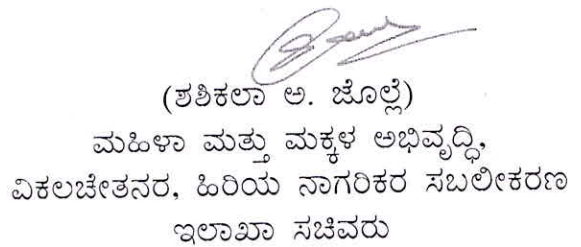 (ಶಶಿಕಲಾ ಅ. ಜೊಲ್ಲೆ)
ಮಹಿಳಾ ಮತ್ತು ಮಕ್ಕಳ ಅಭಿವೃದ್ಧಿ,
ವಿಕಲಚೇತನರ, ಹಿರಿಯ ನಾಗರಿಕರ ಸಬಲೀಕರಣ
ಇಲಾಖಾ ಸಚಿವರು